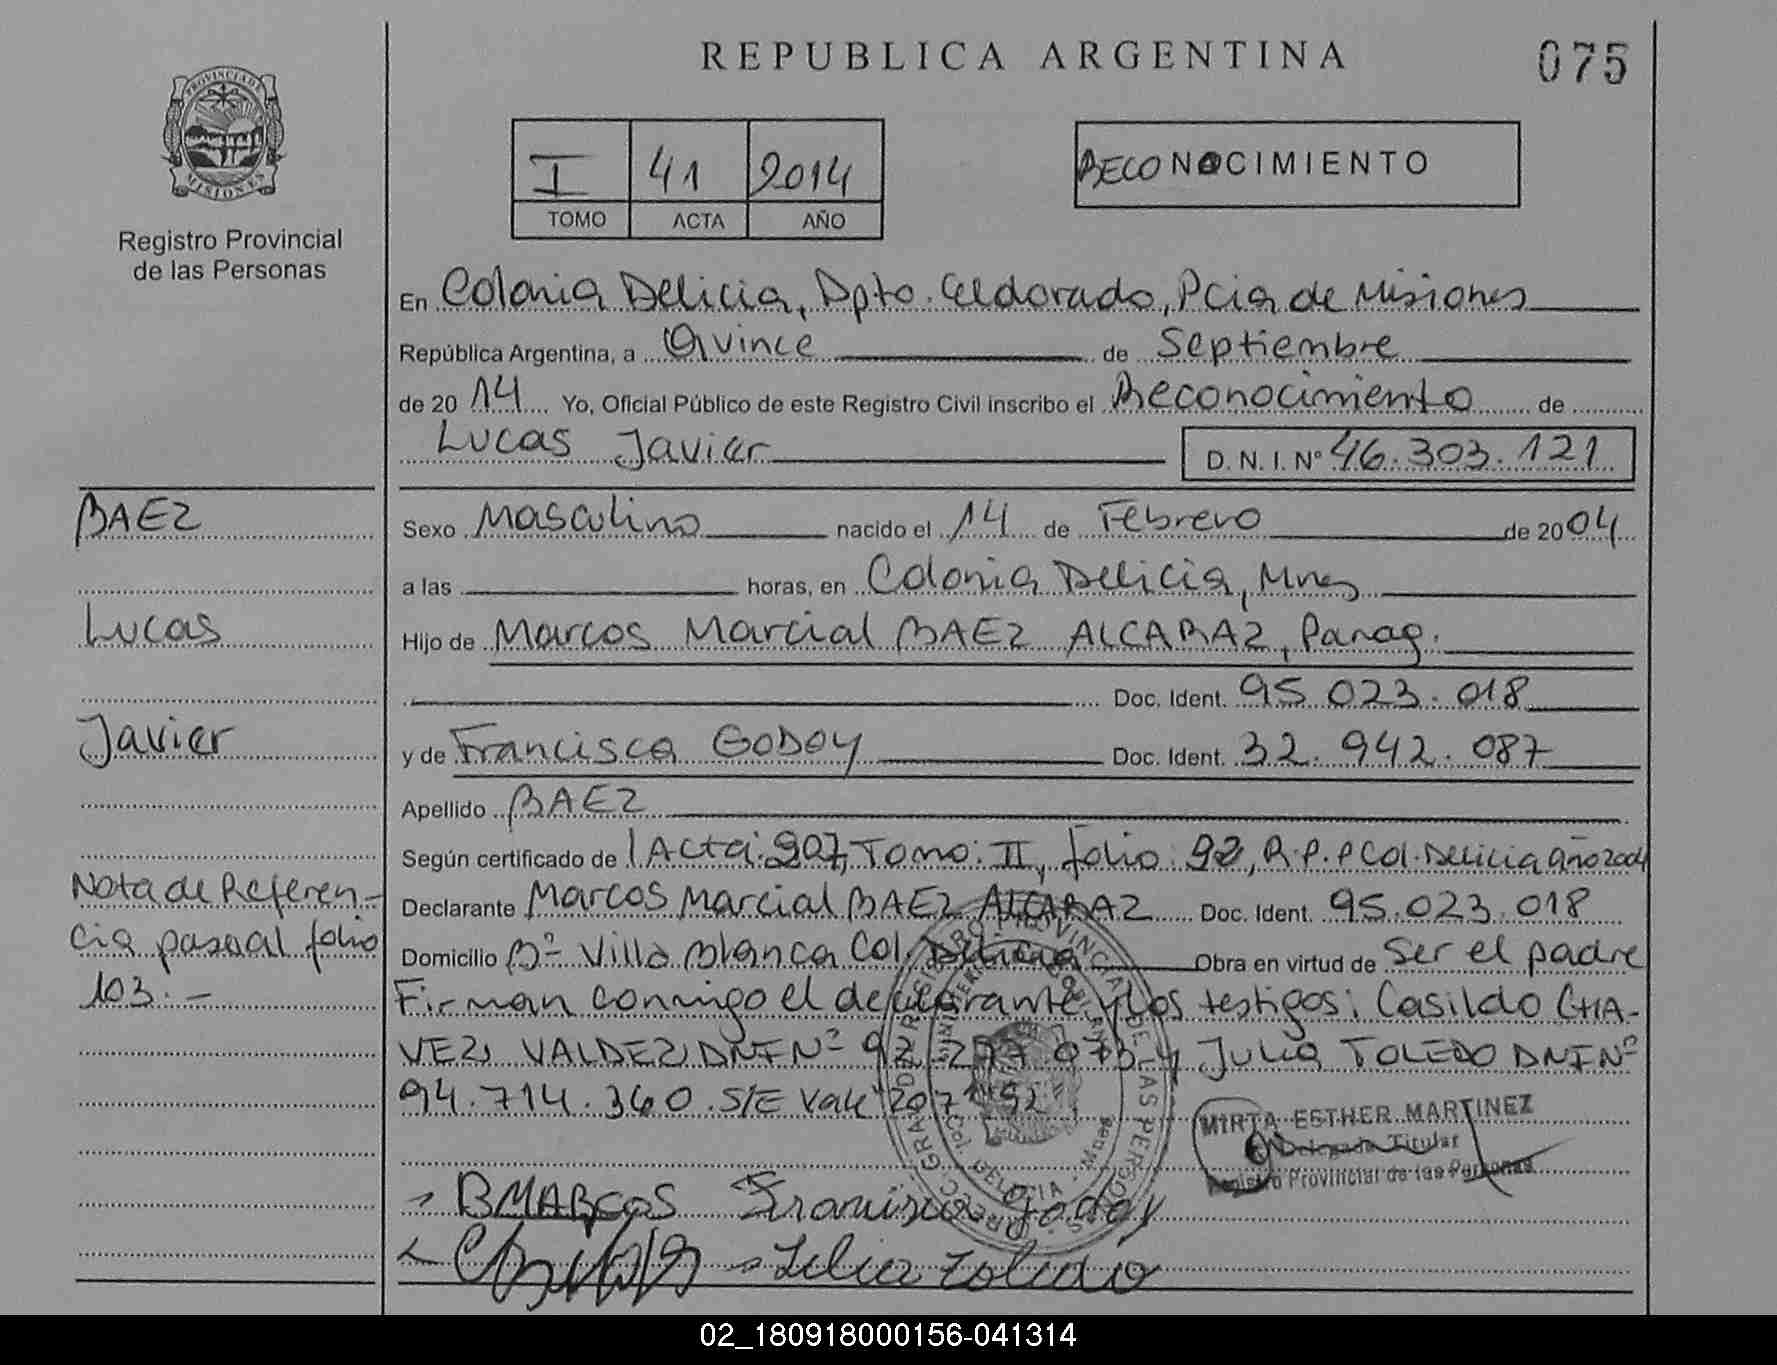 REPUBLICA ARGENTINA
075
PROVINCIA DE
MISIONES
Registro Provincial
de las Personas
I 41 2014
TOMO ACTA AÑO
RECONOCIMIENTO
En Colonia Delicia, Dpto. Eldorado, Pcia de Misiones
República Argentina, a Quince de Septiembre
de 2014 Yo, Oficial Público de este Registro Civil inscribo el Reconocimiento de
Lucas Javier D. N. I. Nº 46.303.121
BAEZ
Sexo Masculino nacido el 14 de Febrero de 2004
a las horas, en Colonia Delicia, Mnes
Lucas
Hijo de Marcos Marcial BAEZ ALCARAZ, Parag.
Doc. Ident. 95.023.018
Javier
y de Francisca GODOY Doc. Ident. 32.942.087
Apellido BAEZ
Según certificado de Acta: 207, Tomo: II, folio: 92, R.P.P Col. Delicia año 2004
Nota de Referen-
cia pasa al folio
103.-
Declarante Marcos Marcial BAEZ ALCARAZ Doc. Ident. 95.023.018
Domicilio Bº Villa Blanca Col. Delicia Obra en virtud de Ser el padre
Firman conmigo el declarante y los testigos: Casildo CHA-
VEZ VALDEZ DNI Nº 92.277.073 y Julia TOLEDO DNI Nº
94.714.360. S/E Vale "207" "92"
MIRTA ESTHER MARTINEZ
Delegada Titular
Registro Provincial de las Personas
BMARCOS Francisca Godoy
Toledo
02_180918000156-041314